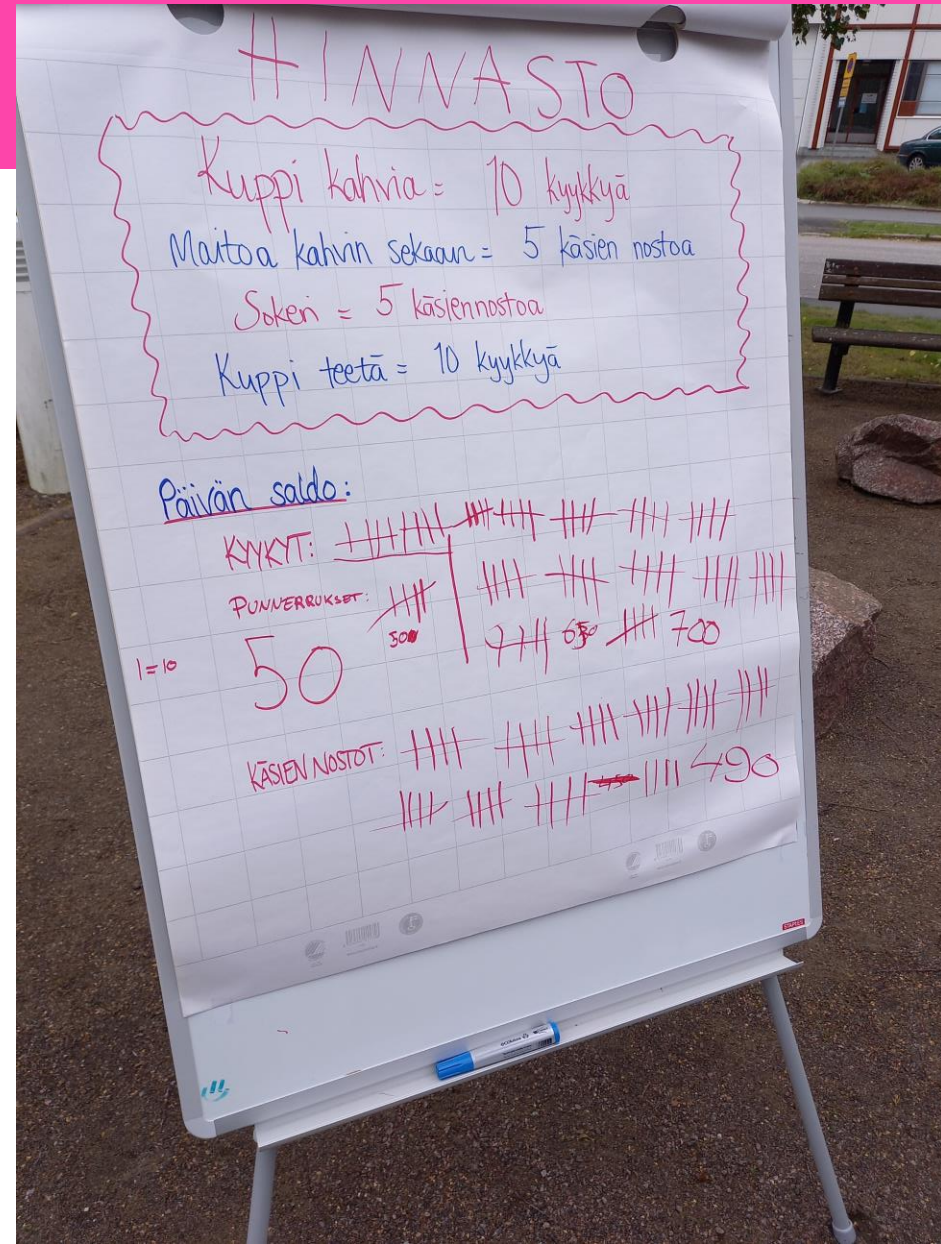 HINNASTO
Kuppi kahvia = 10 kyykkyä
Maitoa kahvin sekaan = 5 käsien nostoa
Sokeri = 5 käsiennostoa
Kuppi teetä = 10 kyykkyä
Päivän saldo:
KYYKYT:
PUNNERRUKSET:
50
1=10
50
650 700
KÄSIEN NOSTOT:
490
STAPLES